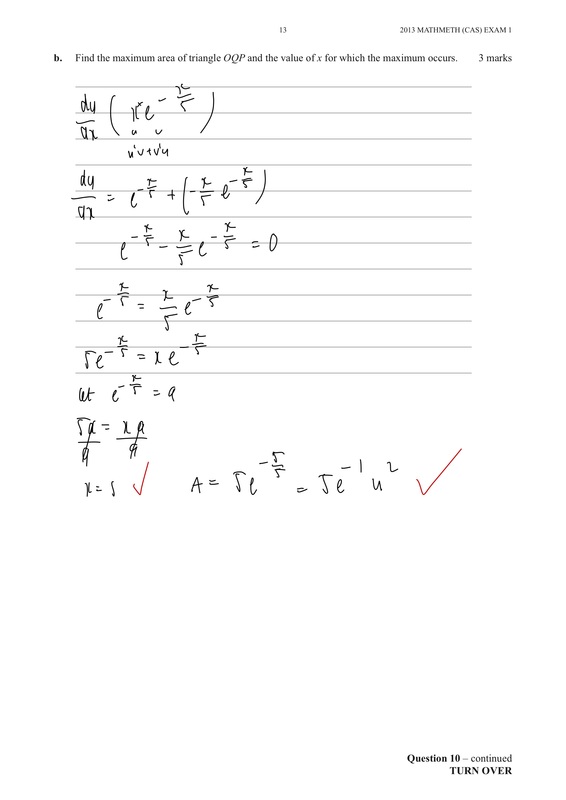 13
2013 MATHMETH (CAS) EXAM 1
b. Find the maximum area of triangle OQP and the value of x for which the maximum occurs. 3 marks
dy/dx ( xe^(-x/5) )
u v
u'v+v'u
dy/dx = e^(-x/5) + (-x/5 e^(-x/5))
e^(-x/5) - x/5 e^(-x/5) = 0
e^(-x/5) = x/5 e^(-x/5)
5e^(-x/5) = xe^(-x/5)
let e^(-x/5) = a
5a/a = xa/a
x = 5 ✓ A = 5e^(-5/5) = 5e^(-1) u² ✓
Question 10 – continued
TURN OVER